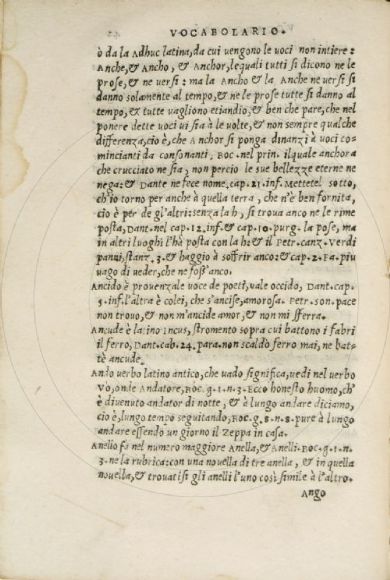 VOCABOLARIO.
ò da la Adhuc latina, da cui vengono le voci non intiere:
Anche, & Ancho, & Anchor, lequali tutti si dicono ne le
prose, & ne versi: ma la Anch & la Anche ne versi si
danno solamente al tempo, & ne le prose tutte si danno al
tempo, & tutte vagliono etiandio, & ben che pare, che nel
ponere dette voci vi sia à le volte, & non sempre qualche
differenza, cio è, che Anchor si ponga dinanzi à voci co
mincianti da consonanti, Boc. nel prin. ilquale anchora
che crucciato ne sia, non percio le sue bellezze eterne ne
nega: & Dante ne fece nome, cap. 21. inf. Mettetel sotto,
ch'io torno per anche à quella terra, che n'è ben fornita,
cio è per de gl'altri: senza la h, si trova anco ne le rime
posta, Dant. nel cap. 12. inf. & cap. 10. purg. la pose, ma
in altri luoghi l'hà posta con la h: & il Petr. canz. Verdi
panni, stanz. 3. & haggio à soffrir anco: & cap. 2. Fa. piu
vago di veder, che ne foss'anco.
Ancido è provenzale voce de poeti, vale occido, Dant. cap.
5. inf. l'altra è colei, che s'ancise, amorosa. Petr. son. pace
non trovo, & non m'ancide amor, & non mi sferra.
Ancude è latino Incus, stromento sopra cui battono i fabri
il ferro, Dant. cab. 24. para. non scaldò ferro mai, ne bat-
tè ancude.
Ando verbo latino antico, che vado significa, vedi nel verbo
Vo, onde Andatore, Boc. g. 1. n. 3. Ecco honesto huomo, ch'
è divenuto andator di notte, & à lungo andare diciamo,
cio è, lungo tempo seguitando, Boc. g. 8. n. 8. pure à lungo
andare essendo un giorno il Zeppa in casa.
Anello fà nel numero maggiore Anella, & Anelli. Boc. g. 1. n.
3. ne la rubrica: con una novella di tre anella, & in quella
novella, & trovatisi gli anelli l'uno così simile à l'altro.
Ango